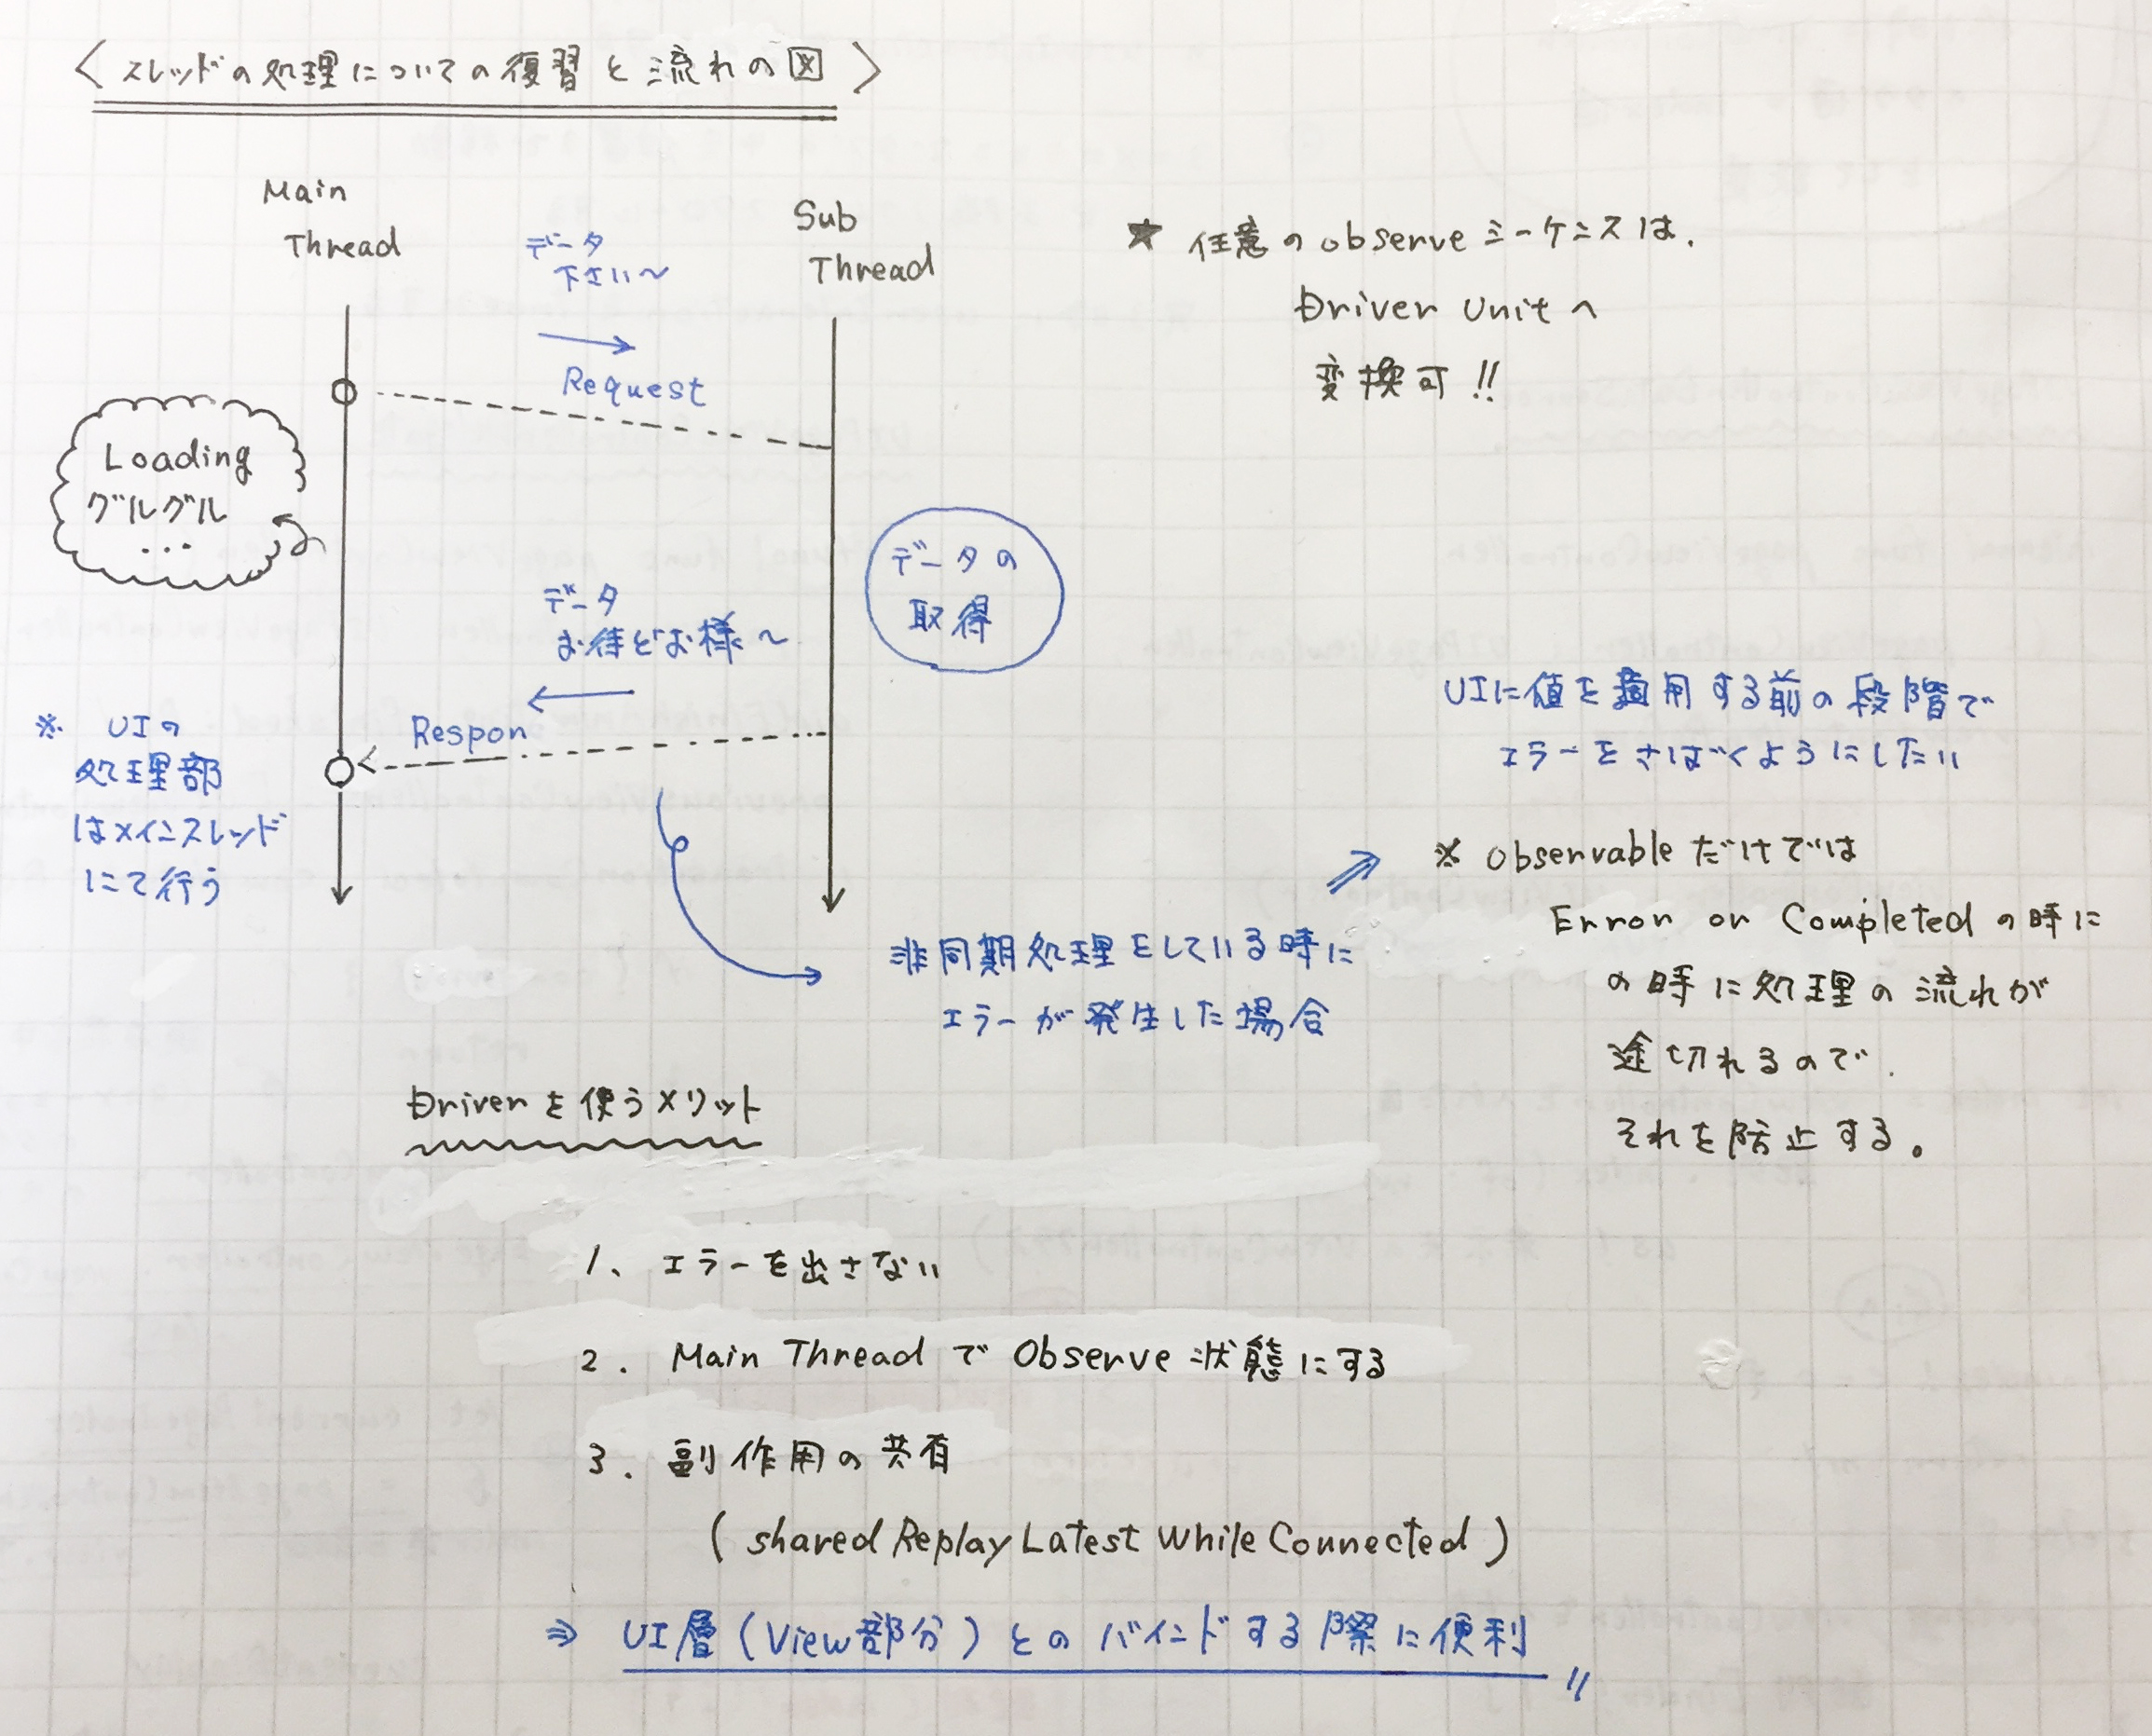 〈スレッドの処理についての復習と流れの図〉
Main
Thread
データ
下さい〜
Request
Sub
Thread
Loading
グルグル
...
データの
取得
データ
お待どお様〜
Respon
※ UIの
処理部
はメインスレッド
にて行う
★ 任意のobserveシーケンスは、
Driver Unitへ
変換可!!
UIに値を適用する前の段階で
エラーをさばくようにしたい
⇒ ※ Observableだけでは
Error or Completedの時に
の時に処理の流れが
途切れるので、
それを防止する。
非同期処理をしている時に
エラーが発生した場合
Driverを使うメリット
1、エラーを出さない
2. Main ThreadでObserve状態にする
3. 副作用の共有
(sharedReplayLatestWhileConnected)
⇒ UI層(View部分)とのバインドする際に便利〃